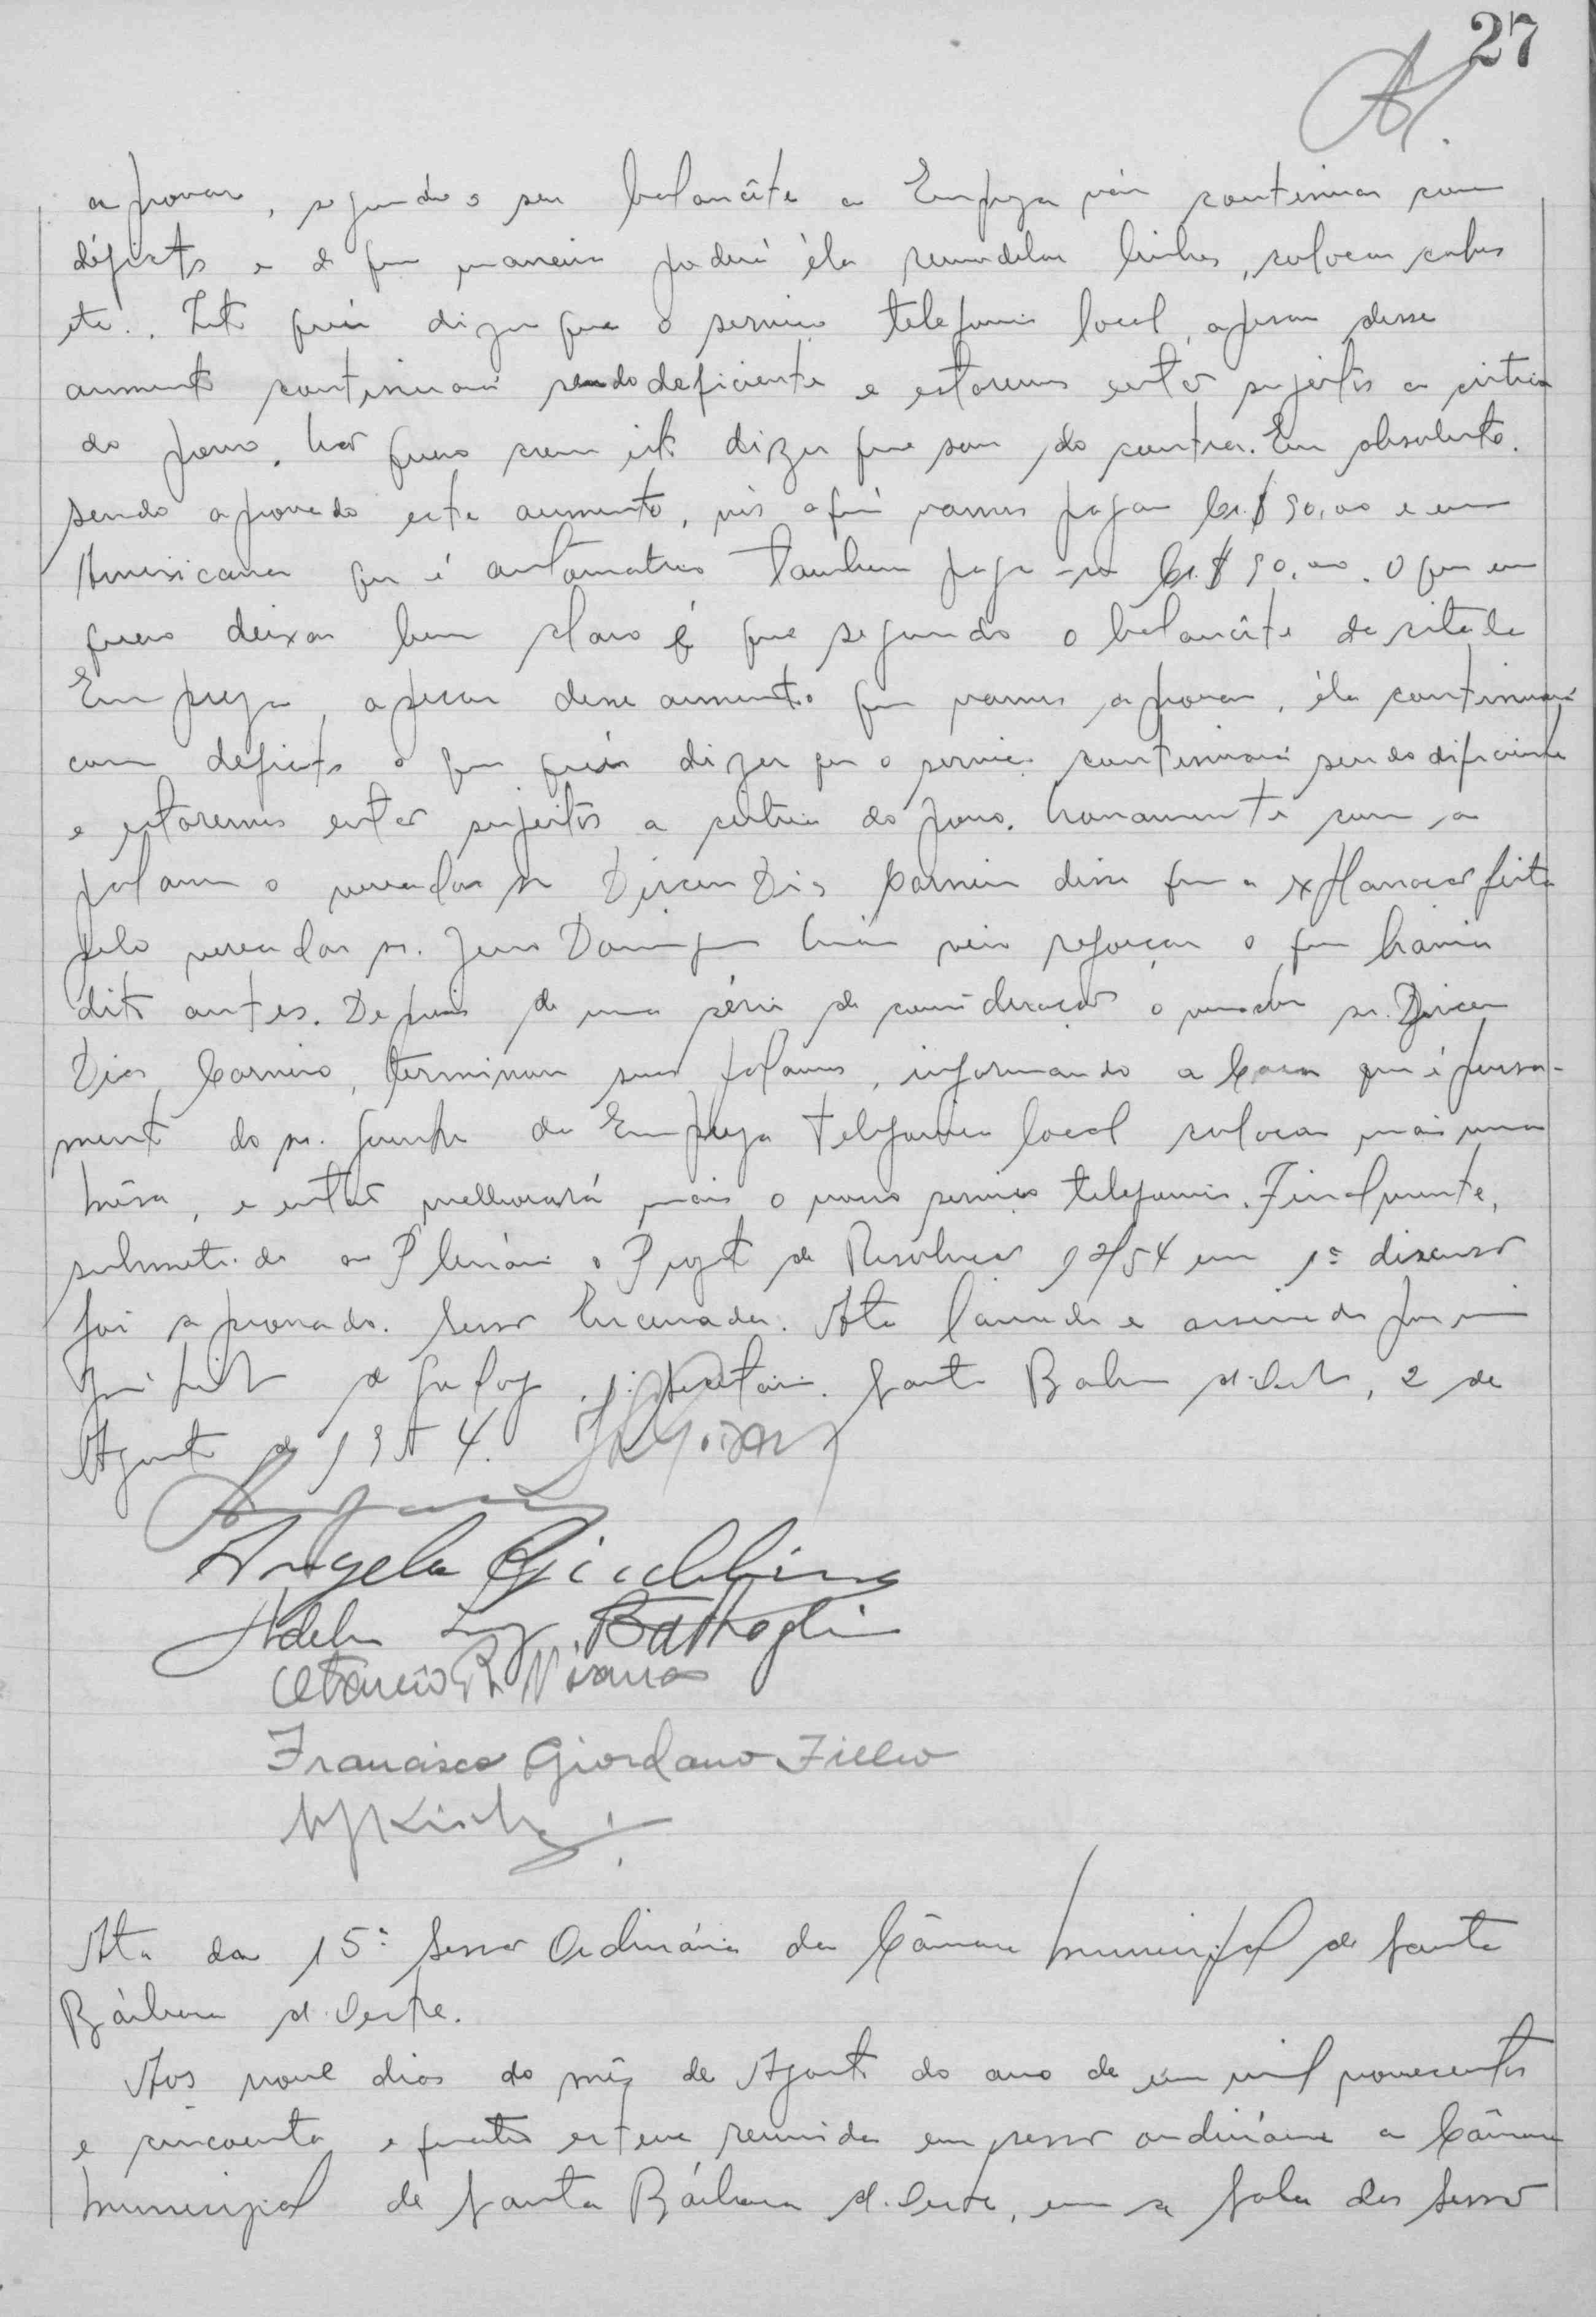 27
aprovar, segundo o seu balancête a Empreza vai continuar com
déficits e de que maneira poderá éla remodelar linhas, colocar cabos
etc.. Isto quér dizer que o serviço telefonico local, apesar desse
aumento continuará sendo deficiente e estaremos então sujeitos a critica
do povo. Não quero com isto dizer que sou do contra. Em absoluto.
Sendo aprovado este aumento, nós aqui vamos pagar Cr.$ 90,00 e em
Americana que é automatico tambem paga-se Cr.$ 90,00. O que eu
quero deixar bem claro é que segundo o balancête da citada
Empreza, apesar desse aumento que vamos aprovar, éla continuará
com deficits o que quér dizer que o serviço continuará sendo dificiente
e estaremos então sujeitos a critica do povo. Novamente com a
palavra o vereador sr Dirceu Dias Carneiro disse que a explanação feita
pelo vereador sr. Domingues veio reforçar o que havia
dito antes. Depois de uma série de considerações o vereador sr. Dirceu
Dias Carneiro, terminou suas palavras, informando a Casa que é pensa-
mento do sr. gerente da Empreza Telefonica local colocar mais uma
mêsa, e então melhorará mais o nosso serviço telefonico. Finalmente,
submetido ao Plenário o Projeto de Resolução 12/54 em 1ª discussão
foi aprovado. Sessão Encerrada. Ata lavrada e assinada por mim
de Godoy 1º secretário. Santa Barbara d'Oeste, 2 de
Agosto de 1954.
Angelo Giubbina
Adelmo Luiz Battaglia
Francisco Giordano Filho
Ata da 15ª Sessão Ordinária da Câmara Municipal de Santa
Bárbara d'Oeste.
Aos nove dias do mês de Agosto do ano de um mil novecentos
e cincoenta e quatro esteve reunida em sessão ordinária a Câmara
Municipal de Santa Bárbara d'Oeste, em a Sala das Sessões